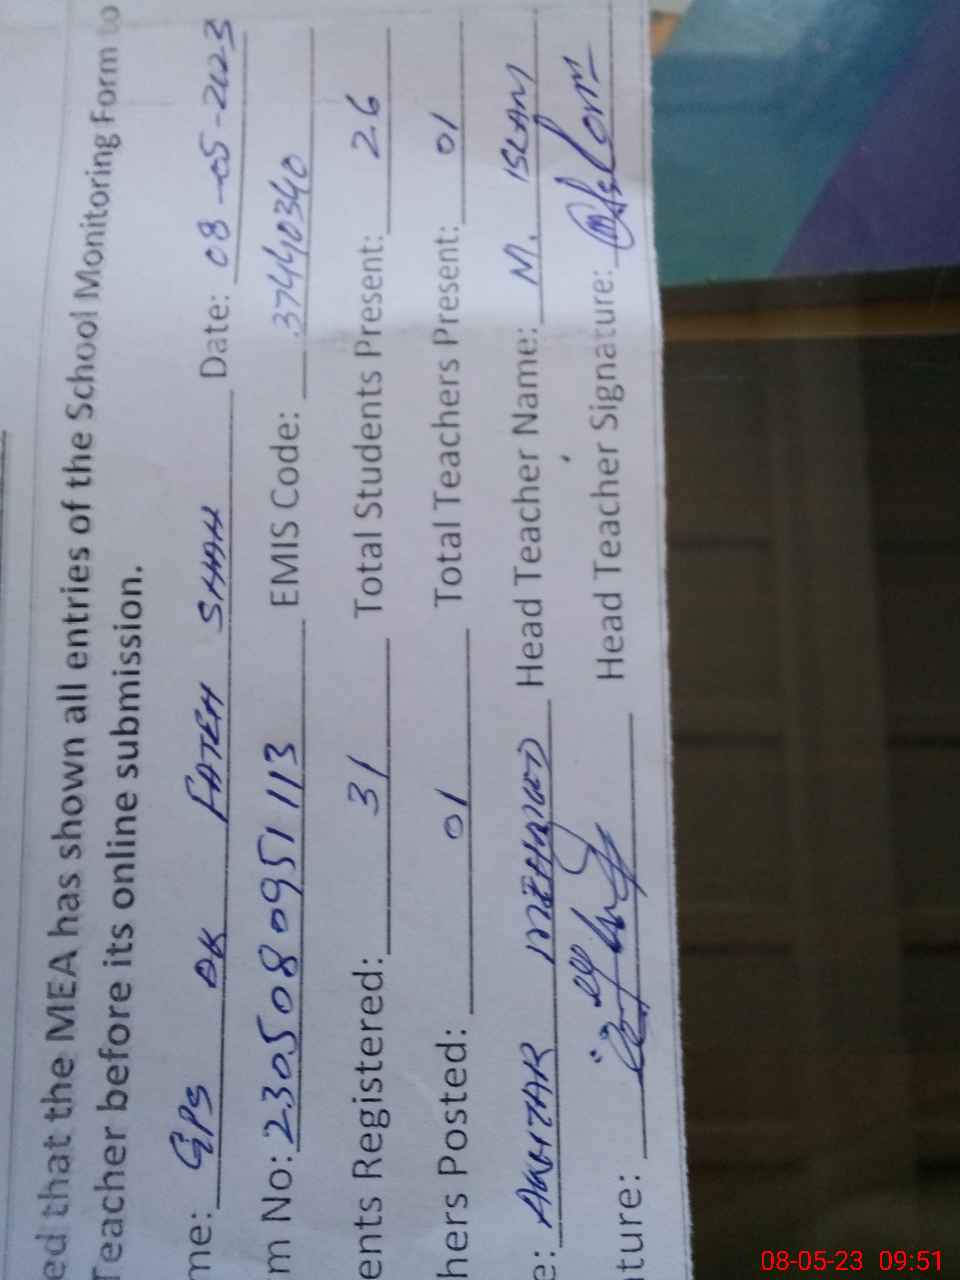 ed that the MEA has shown all entries of the School Monitoring Form to
Teacher before its online submission.
me: GPS AK FATEH SHAH Date: 08-05-2023
m No: 230508095 1113 EMIS Code: 37440340
ents Registered: 31 Total Students Present: 26
hers Posted: 01 Total Teachers Present: 01
e: AKHTAR MEHMOOD Head Teacher Name: M. ISLAM
ture: Head Teacher Signature:
08-05-23 09:51